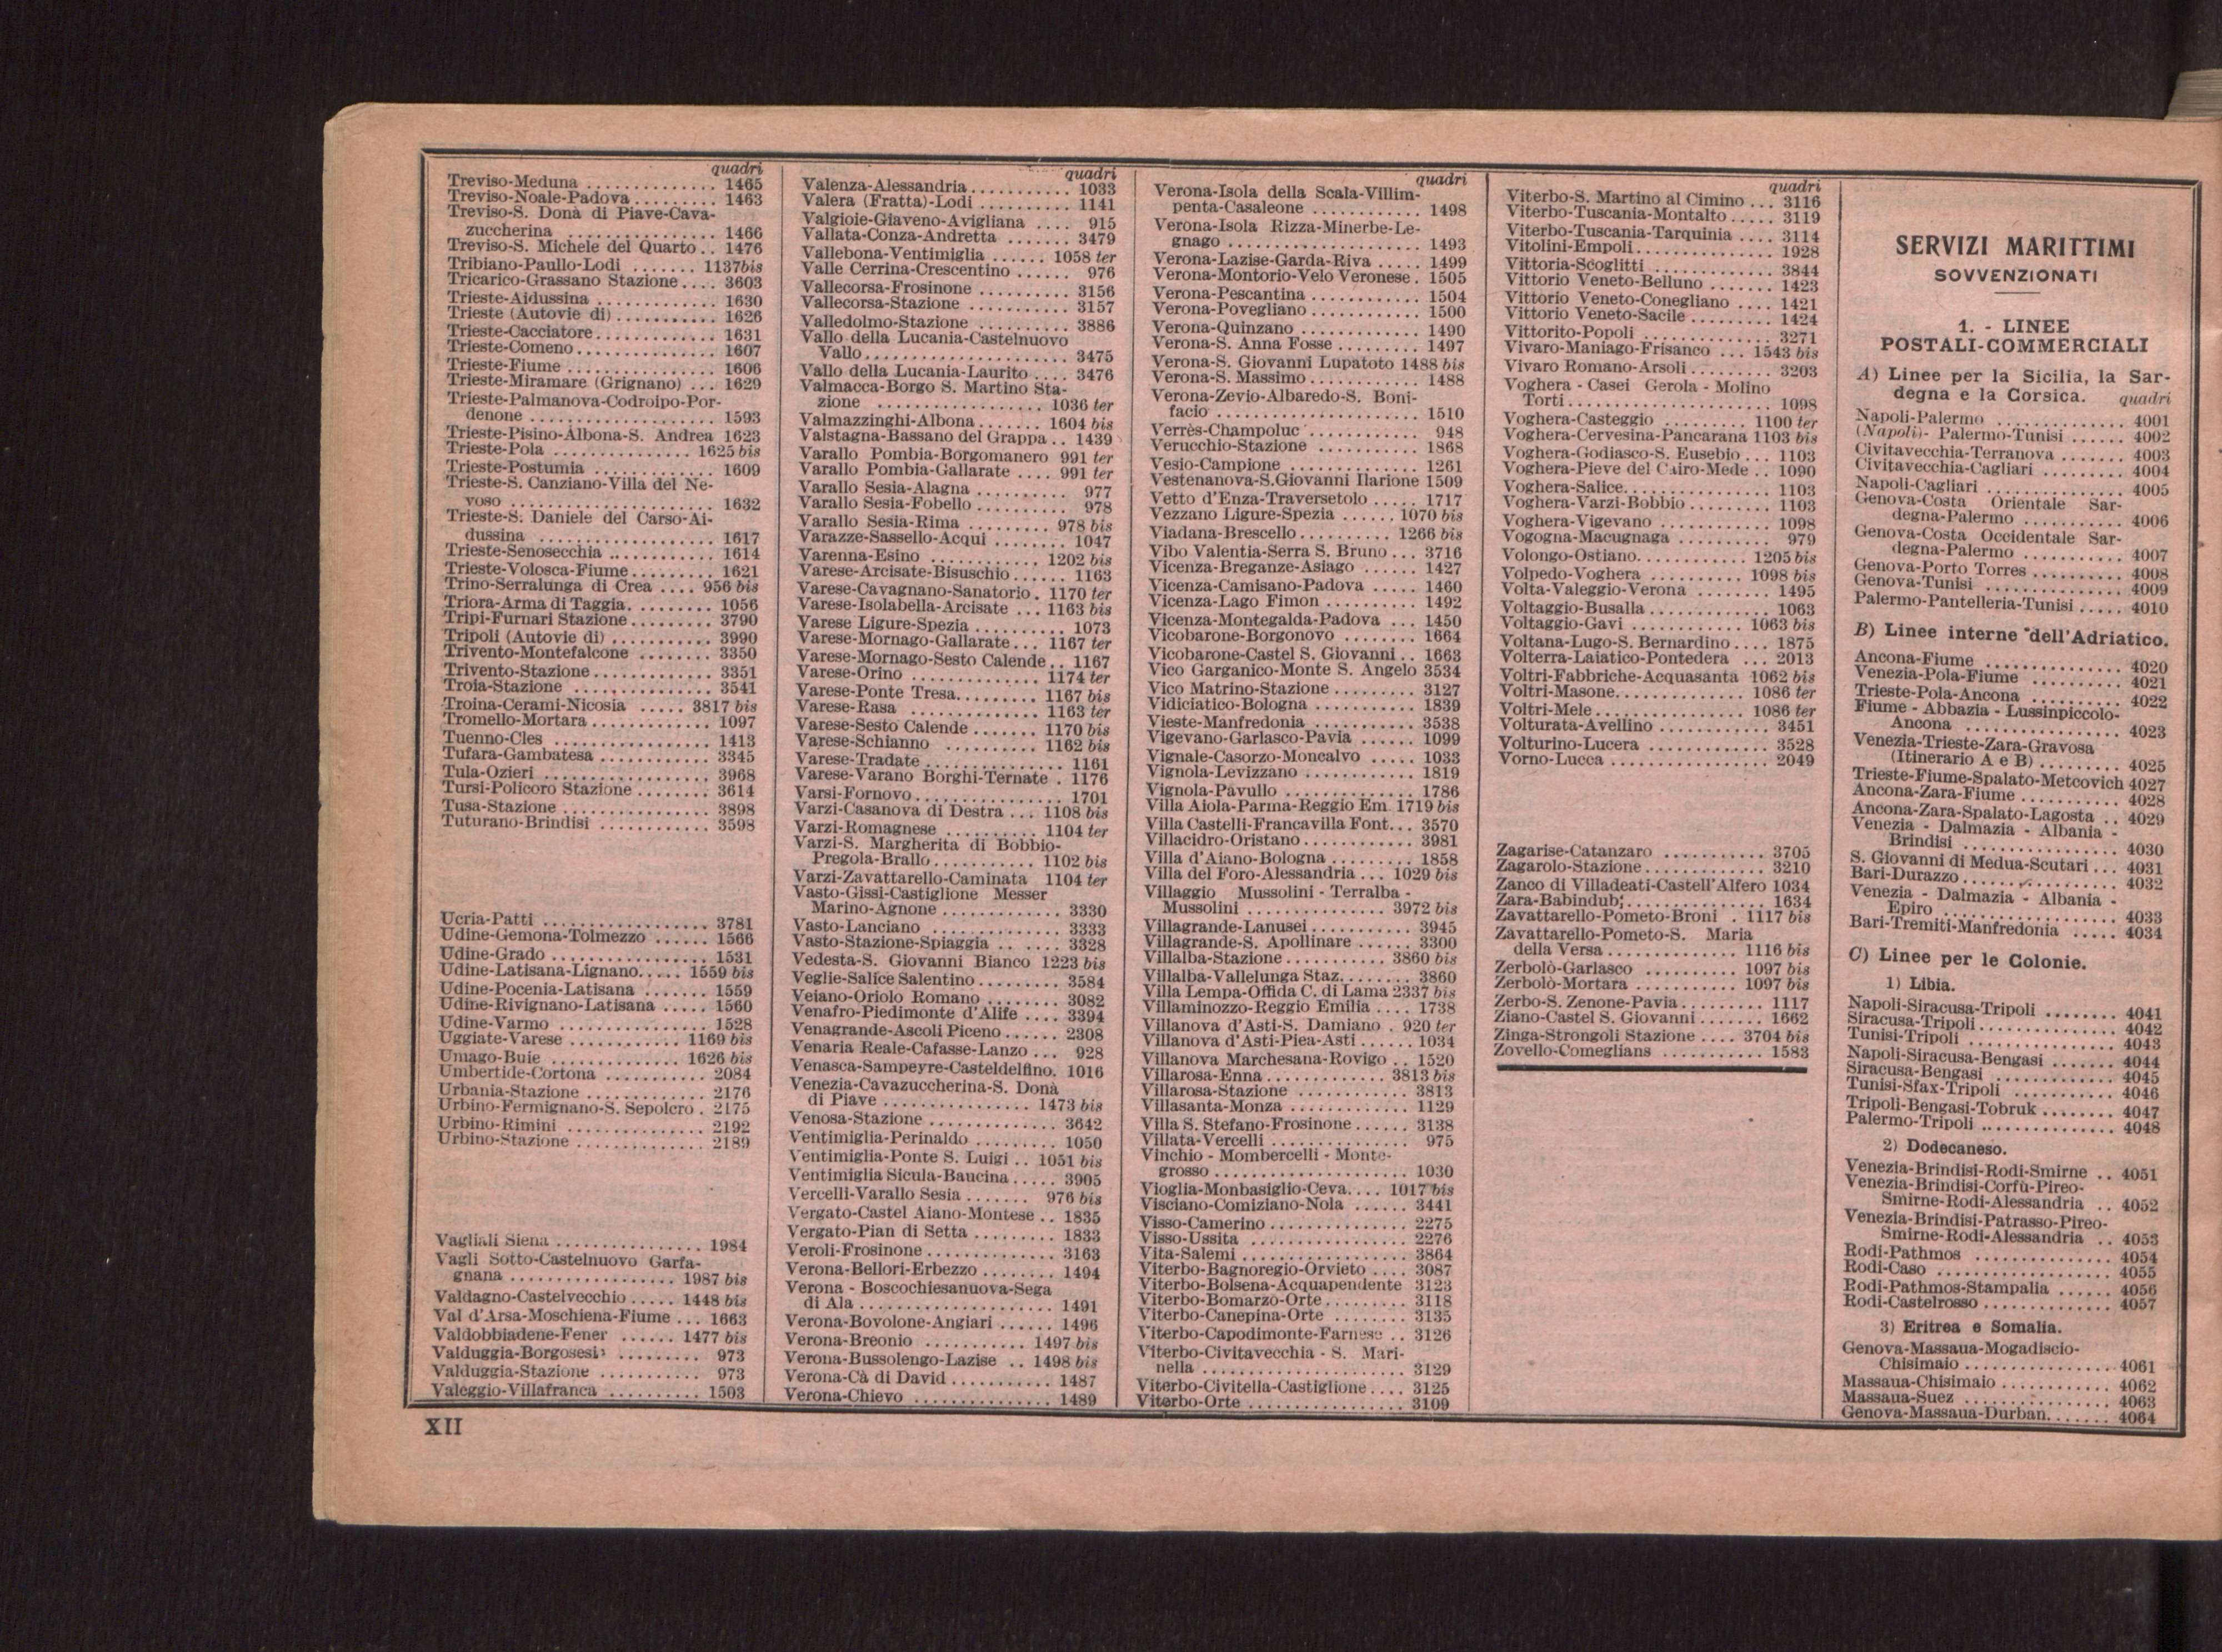 quadri
Treviso-Meduna .............. 1465
Treviso-Noale-Padova ......... 1463
Treviso-S. Donà di Piave-Cava-
zuccherina ................ 1466
Treviso-S. Michele del Quarto .. 1476
Tribiano-Paullo-Lodi ....... 1137 bis
Tricarico-Grassano Stazione .... 3603
Trieste-Aidussina ............ 1630
Trieste (Autovie di) ........... 1626
Trieste-Cacciatore ............. 1631
Trieste-Comeno ............... 1607
Trieste-Fiume ................ 1606
Trieste-Miramare (Grignano) ... 1629
Trieste-Palmanova-Codroipo-Por-
denone .................... 1593
Trieste-Pisino-Albona-S. Andrea 1623
Trieste-Pola ............... 1625 bis
Trieste-Postumia ............. 1609
Trieste-S. Canziano-Villa del Ne-
voso ...................... 1632
Trieste-S. Daniele del Carso-Ai-
dussina ................... 1617
Trieste-Senosecchia ............ 1614
Trieste-Volosca-Fiume ......... 1621
Trino-Serralunga di Crea .... 956 bis
Triora-Arma di Taggia ......... 1056
Tripi-Furnari Stazione ......... 3790
Tripoli (Autovie di) ........... 3990
Trivento-Montefalcone ........ 3350
Trivento-Stazione ............. 3351
Troia-Stazione ............... 3541
Troina-Cerami-Nicosia ..... 3817 bis
Tromello-Mortara ............. 1097
Tuenno-Cles ................. 1413
Tufara-Gambatesa ............ 3345
Tula-Ozieri .................. 3968
Tursi-Policoro Stazione ........ 3614
Tusa-Stazione ................ 3898
Tuturano-Brindisi ............ 3598
Ucria-Patti .................. 3781
Udine-Gemona-Tolmezzo ...... 1566
Udine-Grado ................. 1531
Udine-Latisana-Lignano ..... 1559 bis
Udine-Pocenia-Latisana ....... 1559
Udine-Rivignano-Latisana ..... 1560
Udine-Varmo ................ 1528
Uggiate-Varese ............ 1169 bis
Umago-Buie .............. 1626 bis
Umbertide-Cortona ........... 2084
Urbania-Stazione ............. 2176
Urbino-Fermignano-S. Sepolcro . 2175
Urbino-Rimini ............... 2192
Urbino-Stazione .............. 2189
Vagliali Siena ................ 1984
Vagli Sotto-Castelnuovo Garfa-
gnana ................. 1987 bis
Valdagno-Castelvecchio ..... 1448 bis
Val d'Arsa-Moschiena-Fiume ... 1663
Valdobbiadene-Fener ...... 1477 bis
Valduggia-Borgosesia ......... 973
Valduggia-Stazione ........... 973
Valeggio-Villafranca .......... 1503
XII
quadri
Valenza-Alessandria ........... 1033
Valera (Fratta)-Lodi .......... 1141
Valgioie-Giaveno-Avigliana .... 915
Vallata-Conza-Andretta ....... 3479
Vallebona-Ventimiglia ...... 1058 ter
Valle Cerrina-Crescentino ...... 976
Vallecorsa-Frosinone .......... 3156
Vallecorsa-Stazione ........... 3157
Valledolmo-Stazione .......... 3886
Vallo della Lucania-Castelnuovo
Vallo ..................... 3475
Vallo della Lucania-Laurito .... 3476
Valmacca-Borgo S. Martino Sta-
zione .................. 1036 ter
Valmazzinghi-Albona ....... 1604 bis
Valstagna-Bassano del Grappa .. 1439
Varallo Pombia-Borgomanero 991 ter
Varallo Pombia-Gallarate .... 991 ter
Varallo Sesia-Alagna .......... 977
Varallo Sesia-Fobello .......... 978
Varallo Sesia-Rima ......... 978 bis
Varazze-Sassello-Acqui ........ 1047
Varenna-Esino ............ 1202 bis
Varese-Arcisate-Bisuschio ...... 1163
Varese-Cavagnano-Sanatorio . 1170 ter
Varese-Isolabella-Arcisate ... 1163 bis
Varese Ligure-Spezia .......... 1073
Varese-Mornago-Gallarate ... 1167 ter
Varese-Mornago-Sesto Calende .. 1167
Varese-Orino ............. 1174 ter
Varese-Ponte Tresa ......... 1167 bis
Varese-Rasa .............. 1163 ter
Varese-Sesto Calende ....... 1170 bis
Varese-Schianno .......... 1162 bis
Varese-Tradate ............... 1161
Varese-Varano Borghi-Ternate . 1176
Varsi-Fornovo ................ 1701
Varzi-Casanova di Destra ... 1108 bis
Varzi-Romagnese .......... 1104 ter
Varzi-S. Margherita di Bobbio-
Pregola-Brallo ........... 1102 bis
Varzi-Zavattarello-Caminata 1104 ter
Vasto-Gissi-Castiglione Messer
Marino-Agnone ............. 3330
Vasto-Lanciano .............. 3333
Vasto-Stazione-Spiaggia .. .... 3328
Vedesta-S. Giovanni Bianco 1223 bis
Veglie-Salice Salentino ......... 3584
Veiano-Oriolo Romano ........ 3082
Venafro-Piedimonte d'Alife .... 3394
Venagrande-Ascoli Piceno ...... 2308
Venaria Reale-Cafasse-Lanzo ... 928
Venasca-Sampeyre-Casteldelfino. 1016
Venezia-Cavazuccherina-S. Donà
di Piave ................ 1473 bis
Venosa-Stazione .............. 3642
Ventimiglia-Perinaldo ......... 1050
Ventimiglia-Ponte S. Luigi .. 1051 bis
Ventimiglia Sicula-Baucina ..... 3905
Vercelli-Varallo Sesia ....... 976 bis
Vergato-Castel Aiano-Montese .. 1835
Vergato-Pian di Setta ......... 1833
Veroli-Frosinone .............. 3163
Verona-Bellori-Erbezzo ........ 1494
Verona - Boscochiesanuova-Sega
di Ala ..................... 1491
Verona-Bovolone-Angiari ...... 1496
Verona-Breonio ........... 1497 bis
Verona-Bussolengo-Lazise .. 1498 bis
Verona-Cà di David ........... 1487
Verona-Chievo ............... 1489
quadri
Verona-Isola della Scala-Villim-
penta-Casaleone ............ 1498
Verona-Isola Rizza-Minerbe-Le-
gnago ...................... 1493
Verona-Lazise-Garda-Riva ..... 1499
Verona-Montorio-Velo Veronese . 1505
Verona-Pescantina ............ 1504
Verona-Povegliano ............ 1500
Verona-Quinzano ............. 1490
Verona-S. Anna Fosse ......... 1497
Verona-S. Giovanni Lupatoto 1488 bis
Verona-S. Massimo ............ 1488
Verona-Zevio-Albaredo-S. Boni-
facio ...................... 1510
Verrès-Champoluc ............ 948
Verucchio-Stazione ........... 1868
Vesio-Campione .............. 1261
Vestenanova-S.Giovanni Ilarione 1509
Vetto d'Enza-Traversetolo ..... 1717
Vezzano Ligure-Spezia ...... 1070 bis
Viadana-Brescello .......... 1266 bis
Vibo Valentia-Serra S. Bruno ... 3716
Vicenza-Breganze-Asiago ...... 1427
Vicenza-Camisano-Padova ..... 1460
Vicenza-Lago Fimon .......... 1492
Vicenza-Montegalda-Padova ... 1450
Vicobarone-Borgonovo ........ 1664
Vicobarone-Castel S. Giovanni .. 1663
Vico Garganico-Monte S. Angelo 3534
Vico Matrino-Stazione ......... 3127
Vidiciatico-Bologna ........... 1839
Vieste-Manfredonia ........... 3538
Vigevano-Garlasco-Pavia ...... 1099
Vignale-Casorzo-Moncalvo ..... 1033
Vignola-Levizzano ............ 1819
Vignola-Pavullo .............. 1786
Villa Aiola-Parma-Reggio Em. 1719 bis
Villa Castelli-Francavilla Font... 3570
Villacidro-Oristano ............ 3981
Villa d'Aiano-Bologna ......... 1858
Villa del Foro-Alessandria ... 1029 bis
Villaggio Mussolini - Terralba -
Mussolini ............... 3972 bis
Villagrande-Lanusei ........... 3945
Villagrande-S. Apollinare ...... 3300
Villalba-Stazione ........... 3860 bis
Villalba-Vallelunga Staz. ....... 3860
Villa Lempa-Offida C. di Lama 2337 bis
Villaminozzo-Reggio Emilia .... 1738
Villanova d'Asti-S. Damiano . 920 ter
Villanova d'Asti-Piea-Asti ...... 1034
Villanova Marchesana-Rovigo .. 1520
Villarosa-Enna ............. 3813 bis
Villarosa-Stazione ............ 3813
Villasanta-Monza ............. 1129
Villa S. Stefano-Frosinone ...... 3138
Villata-Vercelli ............... 975
Vinchio - Mombercelli - Monte-
grosso ..................... 1030
Vioglia-Monbasiglio-Ceva .... 1017 bis
Visciano-Comiziano-Nola ...... 3441
Visso-Camerino ............... 2275
Visso-Ussita ................. 2276
Vita-Salemi .................. 3864
Viterbo-Bagnoregio-Orvieto .... 3087
Viterbo-Bolsena-Acquapendente 3123
Viterbo-Bomarzo-Orte ......... 3118
Viterbo-Canepina-Orte ........ 3135
Viterbo-Capodimonte-Farnese .. 3126
Viterbo-Civitavecchia - S. Mari-
nella ...................... 3129
Viterbo-Civitella-Castiglione .... 3125
Viterbo-Orte ................. 3109
quadri
Viterbo-S. Martino al Cimino ... 3116
Viterbo-Tuscania-Montalto ..... 3119
Viterbo-Tuscania-Tarquinia .... 3114
Vitolini-Empoli ............... 1928
Vittoria-Scoglitti ............. 3844
Vittorio Veneto-Belluno ....... 1423
Vittorio Veneto-Conegliano .... 1421
Vittorio Veneto-Sacile ......... 1424
Vittorito-Popoli .............. 3271
Vivaro-Maniago-Frisanco ... 1543 bis
Vivaro Romano-Arsoli ......... 3203
Voghera - Casei Gerola - Molino
Torti ...................... 1098
Voghera-Casteggio ......... 1100 ter
Voghera-Cervesina-Pancarana 1103 bis
Voghera-Godiasco-S. Eusebio ... 1103
Voghera-Pieve del Cairo-Mede .. 1090
Voghera-Salice ............... 1103
Voghera-Varzi-Bobbio ......... 1103
Voghera-Vigevano ............ 1098
Vogogna-Macugnaga .......... 979
Volongo-Ostiano ............ 1205 bis
Volpedo-Voghera .......... 1098 bis
Volta-Valeggio-Verona ........ 1495
Voltaggio-Busalla ............. 1063
Voltaggio-Gavi ............ 1063 bis
Voltana-Lugo-S. Bernardino .... 1875
Volterra-Laiatico-Pontedera ... 2013
Voltri-Fabbriche-Acquasanta 1062 bis
Voltri-Masone ............. 1086 ter
Voltri-Mele ............... 1086 ter
Volturata-Avellino ............ 3451
Volturino-Lucera ............. 3528
Vorno-Lucca ................. 2049
Zagarise-Catanzaro ........... 3705
Zagarolo-Stazione ............. 3210
Zanco di Villadeati-Castell'Alfero 1034
Zara-Babindub ............... 1634
Zavattarello-Pometo-Broni . 1117 bis
Zavattarello-Pometo-S. Maria
della Versa .............. 1116 bis
Zerbolò-Garlasco .......... 1097 bis
Zerbolò-Mortara .......... 1097 bis
Zerbo-S. Zenone-Pavia ......... 1117
Ziano-Castel S. Giovanni ....... 1662
Zinga-Strongoli Stazione .... 3704 bis
Zovello-Comeglians ........... 1583
SERVIZI MARITTIMI
SOVVENZIONATI
1. - LINEE
POSTALI-COMMERCIALI
A) Linee per la Sicilia, la Sar-
degna e la Corsica. quadri
Napoli-Palermo .............. 4001
(Napoli)- Palermo-Tunisi ...... 4002
Civitavecchia-Terranova ....... 4003
Civitavecchia-Cagliari ......... 4004
Napoli-Cagliari ............... 4005
Genova-Costa Orientale Sar-
degna-Palermo ........... 4006
Genova-Costa Occidentale Sar-
degna-Palermo ........... 4007
Genova-Porto Torres .......... 4008
Genova-Tunisi ............... 4009
Palermo-Pantelleria-Tunisi ..... 4010
B) Linee interne dell'Adriatico.
Ancona-Fiume ............... 4020
Venezia-Pola-Fiume .......... 4021
Trieste-Pola-Ancona .......... 4022
Fiume - Abbazia - Lussinpiccolo-
Ancona ................. 4023
Venezia-Trieste-Zara-Gravosa
(Itinerario A e B) ......... 4025
Trieste-Fiume-Spalato-Metcovich 4027
Ancona-Zara-Fiume ........... 4028
Ancona-Zara-Spalato-Lagosta .. 4029
Venezia - Dalmazia - Albania -
Brindisi ................. 4030
S. Giovanni di Medua-Scutari ... 4031
Bari-Durazzo ................. 4032
Venezia - Dalmazia - Albania -
Epiro ................... 4033
Bari-Tremiti-Manfredonia ..... 4034
C) Linee per le Colonie.
1) Libia.
Napoli-Siracusa-Tripoli ........ 4041
Siracusa-Tripoli ............... 4042
Tunisi-Tripoli ................ 4043
Napoli-Siracusa-Bengasi ....... 4044
Siracusa-Bengasi ............. 4045
Tunisi-Sfax-Tripoli ........... 4046
Tripoli-Bengasi-Tobruk ........ 4047
Palermo-Tripoli ............... 4048
2) Dodecaneso.
Venezia-Brindisi-Rodi-Smirne .. 4051
Venezia-Brindisi-Corfù-Pireo-
Smirne-Rodi-Alessandria .. 4052
Venezia-Brindisi-Patrasso-Pireo-
Smirne-Rodi-Alessandria .. 4053
Rodi-Pathmos ............... 4054
Rodi-Caso ................... 4055
Rodi-Pathmos-Stampalia ...... 4056
Rodi-Castelrosso .............. 4057
3) Eritrea e Somalia.
Genova-Massaua-Mogadiscio-
Chisimaio ................ 4061
Massaua-Chisimaio ............ 4062
Massaua-Suez ................ 4063
Genova-Massaua-Durban ....... 4064